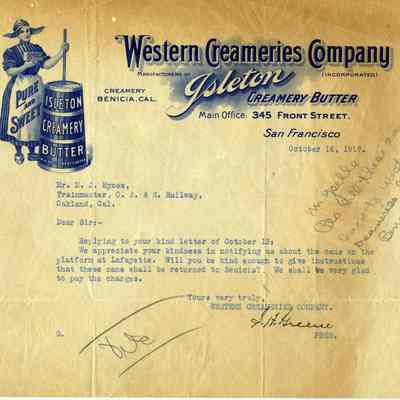 Western Creameries Company
Manufacturers of
(INCORPORATED)
Isleton
CREAMERY BUTTER
CREAMERY
BENICIA, CAL.
Main Office: 345 FRONT STREET.
San Francisco
PURE
AND
SWEET
ISLETON
CREAMERY
BUTTER
October 16, 1917.
Mr. N. J. Hynes,
Trainmaster, O. A. & E. Railway,
Oakland, Cal.
Dear Sir:-
Replying to your kind letter of October 13:
We appreciate your kindness in notifying us about the cans on the
platform at Lafayette. Will you be kind enough to give instructions
that these cans shall be returned to Benicia? We shall be very glad
to pay the charges.
Yours very truly,
WESTERN CREAMERIES COMPANY.
Greene
PRES.
G.